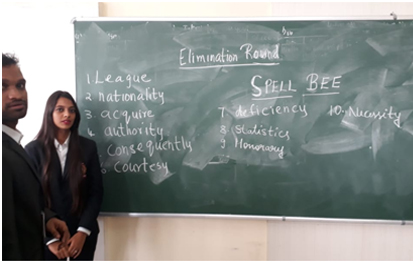 Elimination Round
SPELL BEE
1 League
2 nationality
3 acquire
4 authority
Consequently
Courtesy
7 deficiency
8 Statistics
9 Honorary
10. Necessity